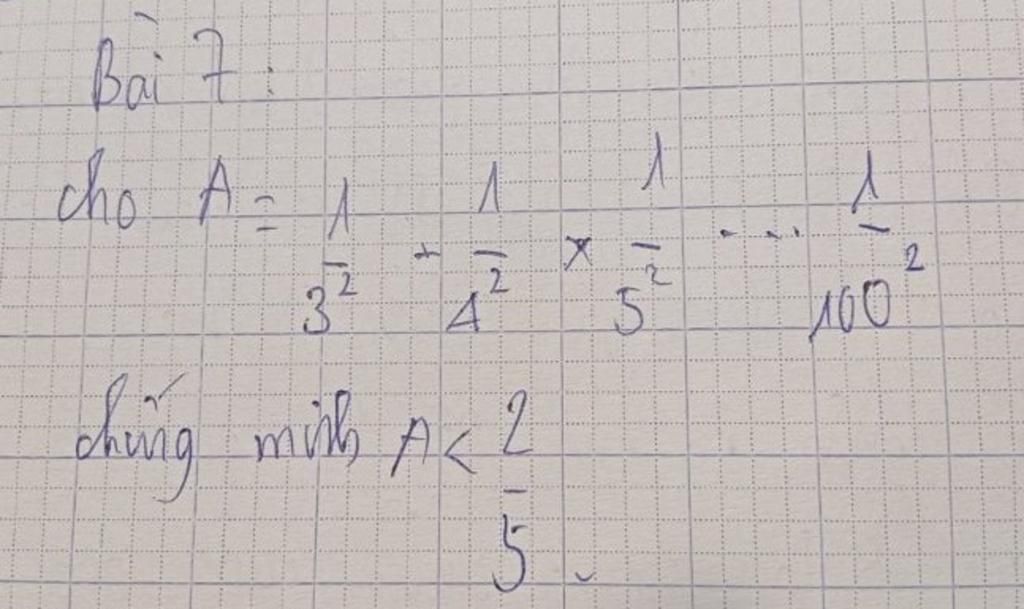 Bài 7:
cho A = 1/3² + 1/4² × 1/5² ..... 1/100²
chứng minh A < 2/5.